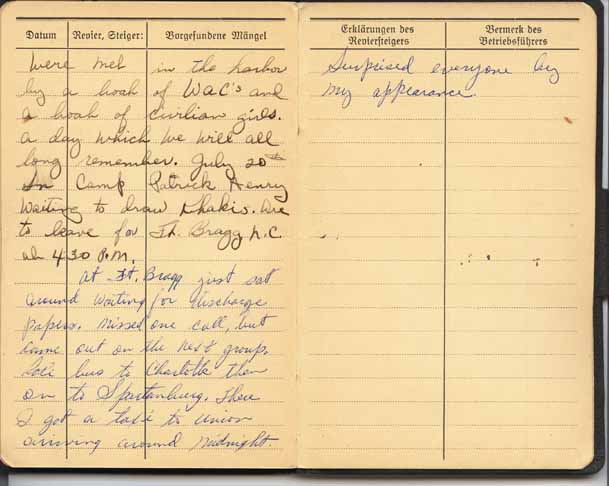 Datum Revier, Steiger: Vorgefundene Mängel
Were met in the harbor
by a boat of WAC's and
a boat of civilian girls.
a day which we will all
long remember. July 20th
In Camp Patrick Henry
waiting to draw khakis. Are
to leave for Ft. Bragg N.C.
at 4:30 P.M.
At Ft. Bragg just sat
around waiting for discharge
papers. Missed one call, but
came out on the next group.
bus to Charlotte then
on to Spartanburg. There
I got a taxi to Union
arriving around midnight.
Erklärungen des Reviersteigers
Vermerk des Betriebsführers
Surprised everyone by
my appearance.